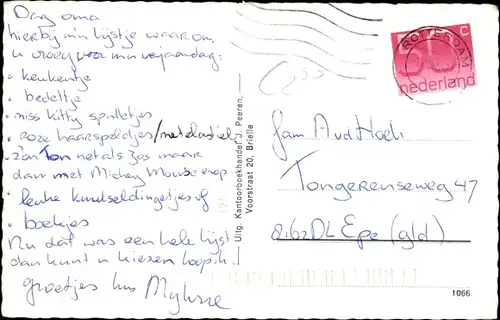 Dag oma
hierbij m'n lijstje waarom
u vroeg voor m'n verjaardag:
• keukentje
• bedeltje
• miss Kitty spulletjes
• roze haarspeldjes/
• zo'n Ton net als Jos maar
dan met Mickey Mouse erop
• leuke knutseldingetjes of
• boekjes
Nu dat was een hele lijst
dan kunt u kiezen hoop ik.
groetjes
Uitg. Kantoorboekhandel J. Peeren,
Voorstraat 20, Brielle
ROTTERDAM
55 C
nederland
fam A v d
Tongerenseweg 47
8162DL Epe (gld)
1066